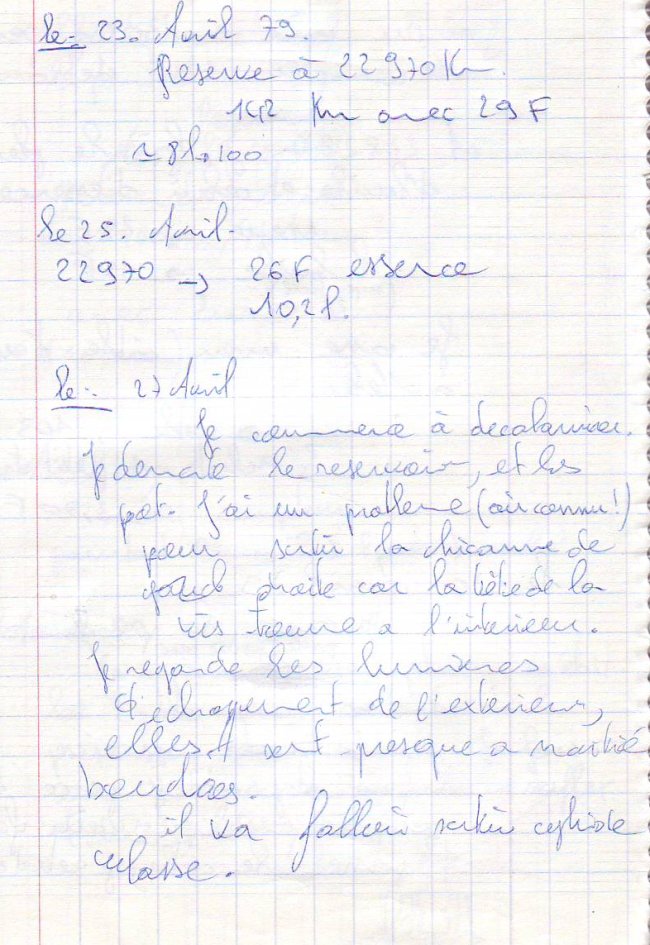 le: 23. Avril 79.
Reserve à 22970 Km.
Km avec 29 F
≃ 8l. 100
le 25. Avril.
22970 → 26 F essence
10,2 l.
le: 27 Avril
Je commence à decalaminer.
Je demonte le reservoir, et les
pot. J'ai un probleme (air connu!)
pour sortir la chicanne de
droite car la tête de la
vis tourne a l'interieur.
Je regarde les lumieres
d'echappement de l'exterieur,
elles sont presque a moitié
bouchées.
il va falloir sortir cylindre
culasse.